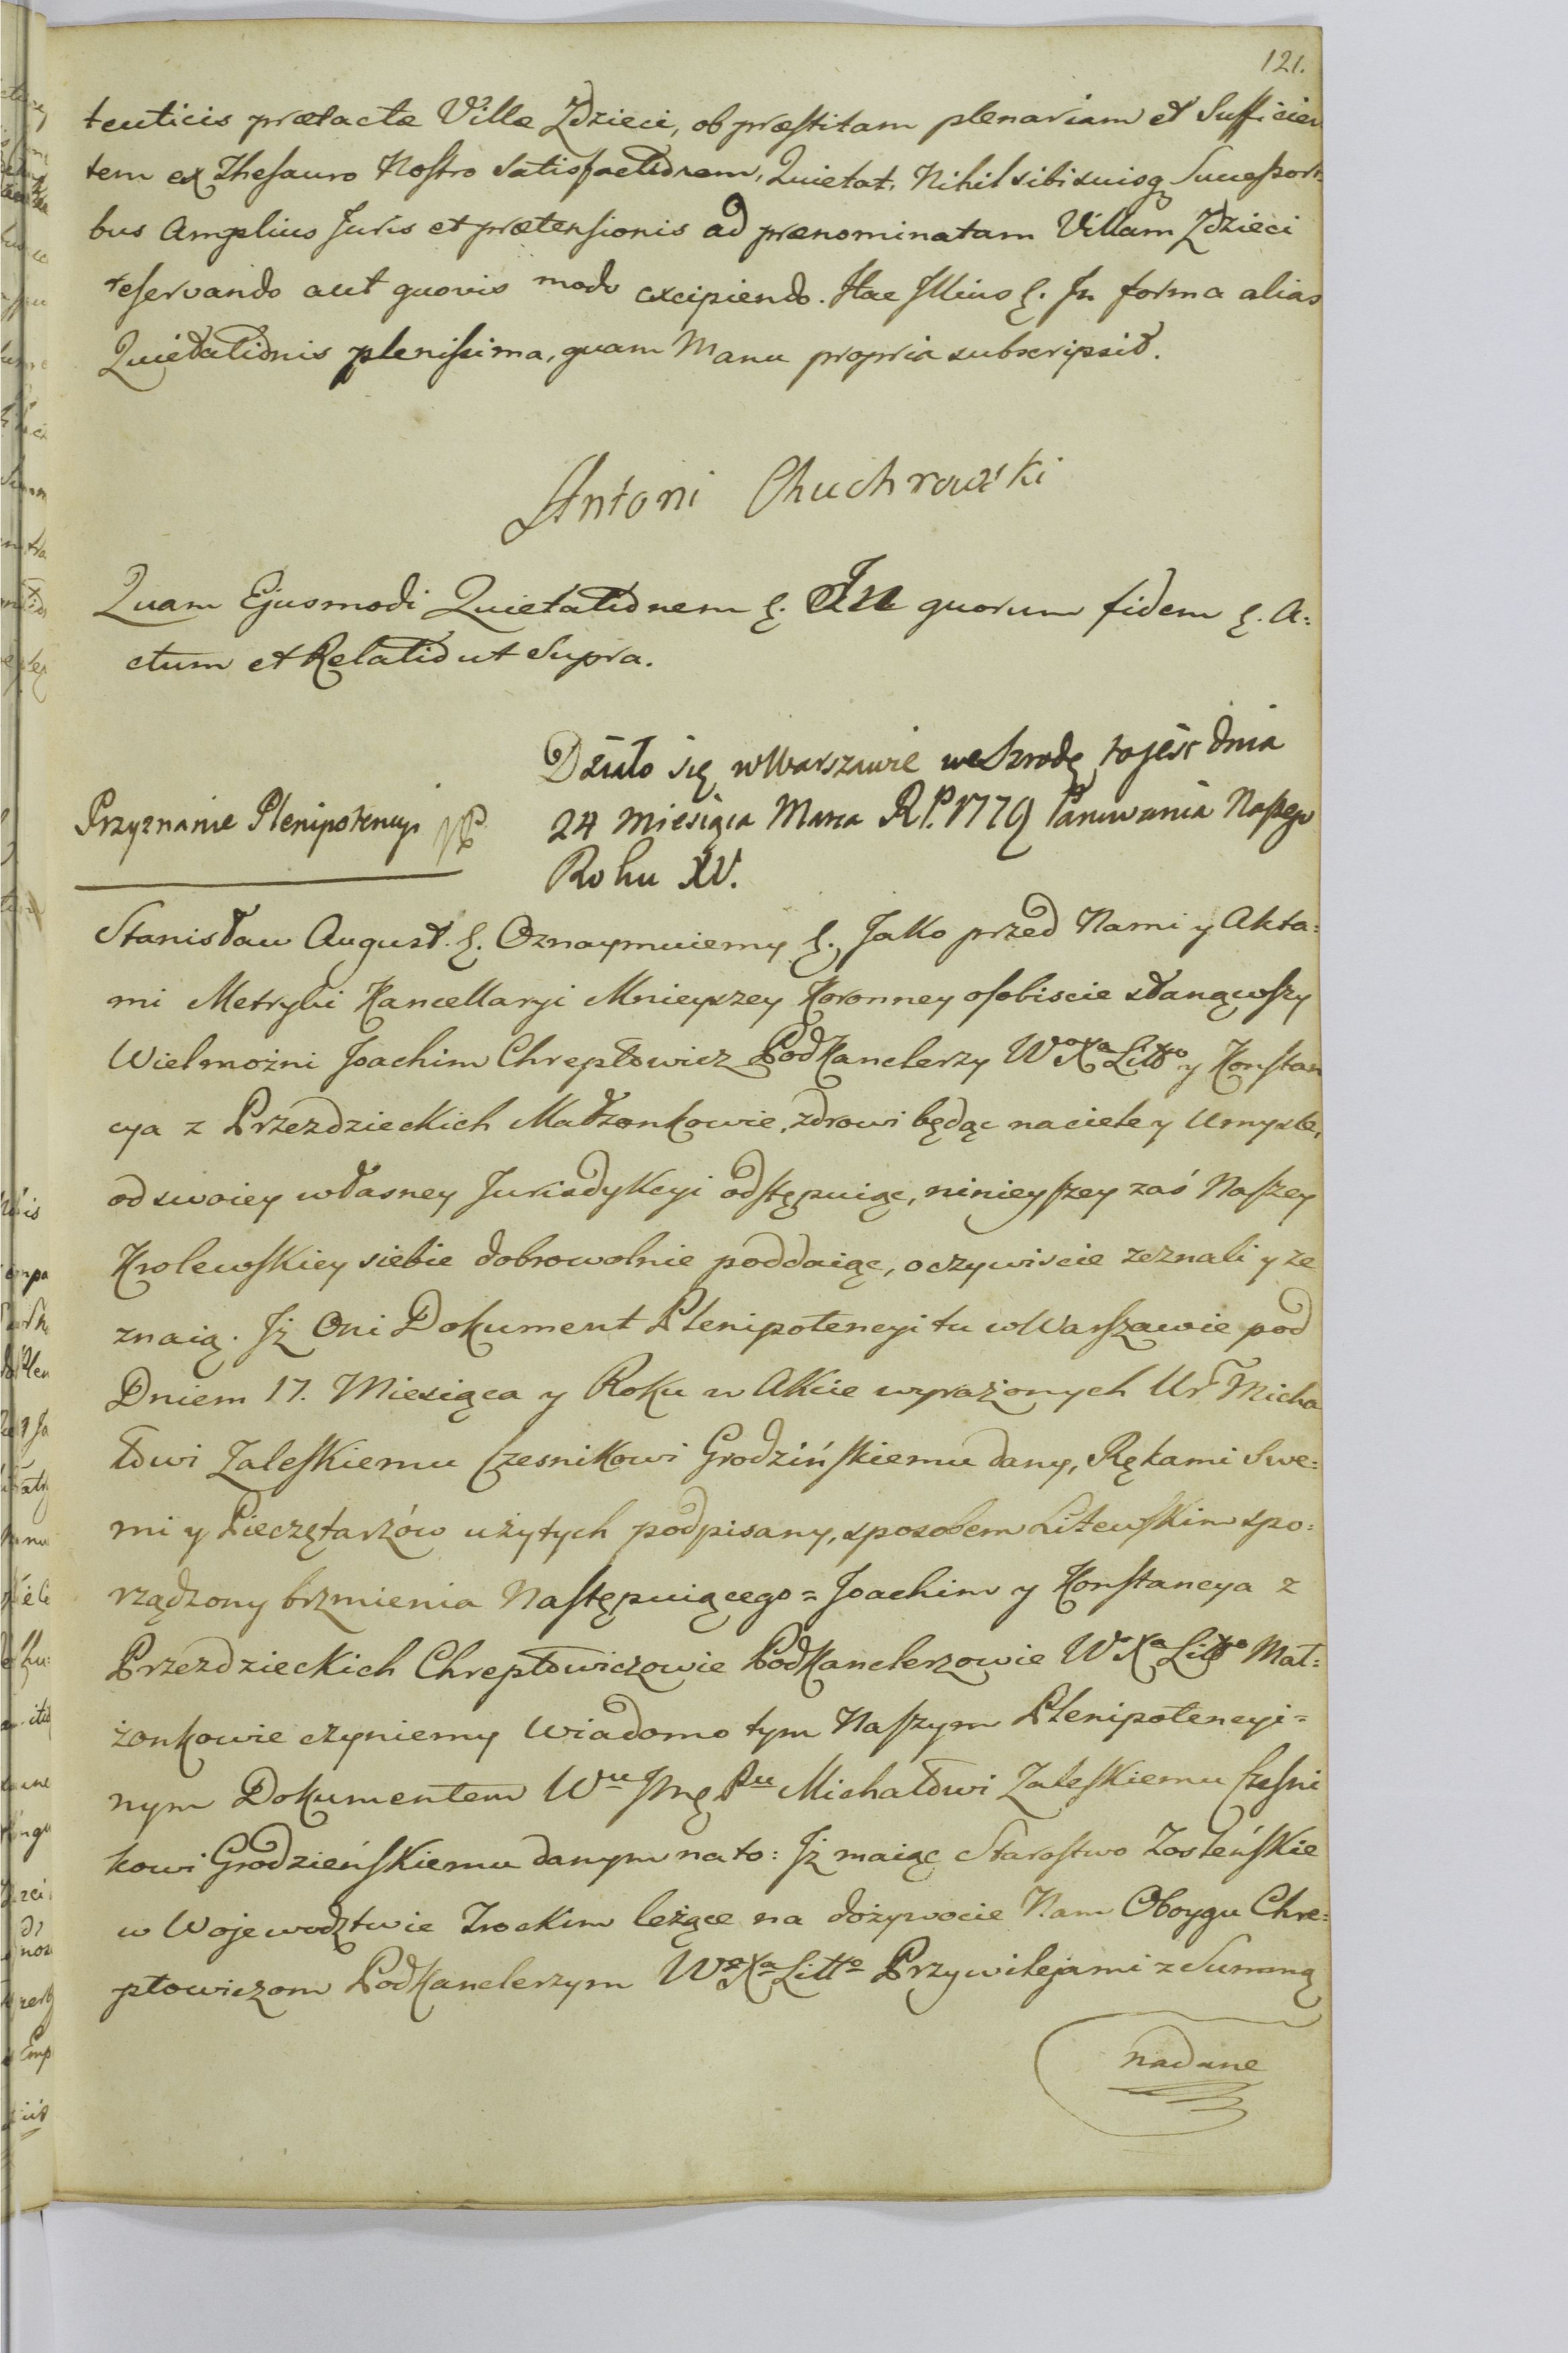 121.
tenticis prætactæ Villæ Zdzieci, ob præstitam plenariam et Sufficien
tem ex Thesauro Nostro Satisfactionem, Quietat. Nihil sibi suisq Successori:
bus Amplius Juris et prætensionis ad prænominatam Villam Zdzieci
reservando aut quovis modo excipiendo. Hac Illius &. In forma alias
Quietationis plenissima, quam Manu propria subscripsit.
Antoni Chuchrowski
Quam Ejusmodi Quietationem &. In quorum fidem &. A:
ctum et Relatio ut Supra.
Działo się w Warszawie we Szrodę to jest dnia
24 Miesiąca Marca R.P. 1779 Panowania Naszego
Roku XV.
Przyznanie Plenipotencyi
Stanisław August &. Oznaymuiemy &. Jako przed Nami y Akta:
mi Metryki Kancellaryi Mnieyszey Koronney osobiscie stanąwszy
Wielmożni Joachim Chreptowicz PodKanclerzy Wo Xa Litto y Konstan
cya z Przezdzieckich Małżonkowie, zdrowi będąc na ciele y Umysle,
od swoiey własney Jurisdykcyi odstępuiąc, ninieyszey zaś Naszey
Krolewskiey siebie dobrowolnie poddaiąc, oczywiscie zeznali y ze
znaią. Jż Oni Dokument Plenipotencyi tu w Warszawie pod
Dniem 17. Miesiąca y Roku w Akcie wyrażonych Ur Micha
łowi Zaleskiemu Czesnikowi Grodzińskiemu dany, Rękami Swe:
mi y Pieczętarzów użytych podpisany, sposobem Litewskim spo:
rządzony brzmienia Następuiącego = Joachim y Konstancya z
Przezdzieckich Chreptowiczowie PodKanclerzowie Wo Xa Litto Mał:
żonkowie czyniemy Wiadomo tym Naszym Plenipotencyi=
nym Dokumentem Wu Jmę Pu Michałowi Zaleskiemu Czesni
kowi Grodzieńskiemu danym na to: Jż maiąc Starostwo Zosleńskie
w Wojewodztwie Trockim leżące na dożywocie Nam Oboygu Chre=
ptowiczom PodKanclerzym Wo Xa Litto Przywilejami z Summą
nadane